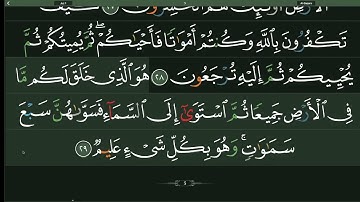 تَكْفُرُونَ بِٱللَّهِ وَكُنتُمْ أَمْوَٰتًا فَأَحْيَٰكُمْ ۖ ثُمَّ يُمِيتُكُمْ ثُمَّ
يُحْيِيكُمْ ثُمَّ إِلَيْهِ تُرْجَعُونَ ٢٨ هُوَ ٱلَّذِى خَلَقَ لَكُم مَّا
فِى ٱلْأَرْضِ جَمِيعًا ثُمَّ ٱسْتَوَىٰٓ إِلَى ٱلسَّمَآءِ فَسَوَّىٰهُنَّ سَبْعَ
سَمَٰوَٰتٍ ۚ وَهُوَ بِكُلِّ شَىْءٍ عَلِيمٌ ٢٩
5